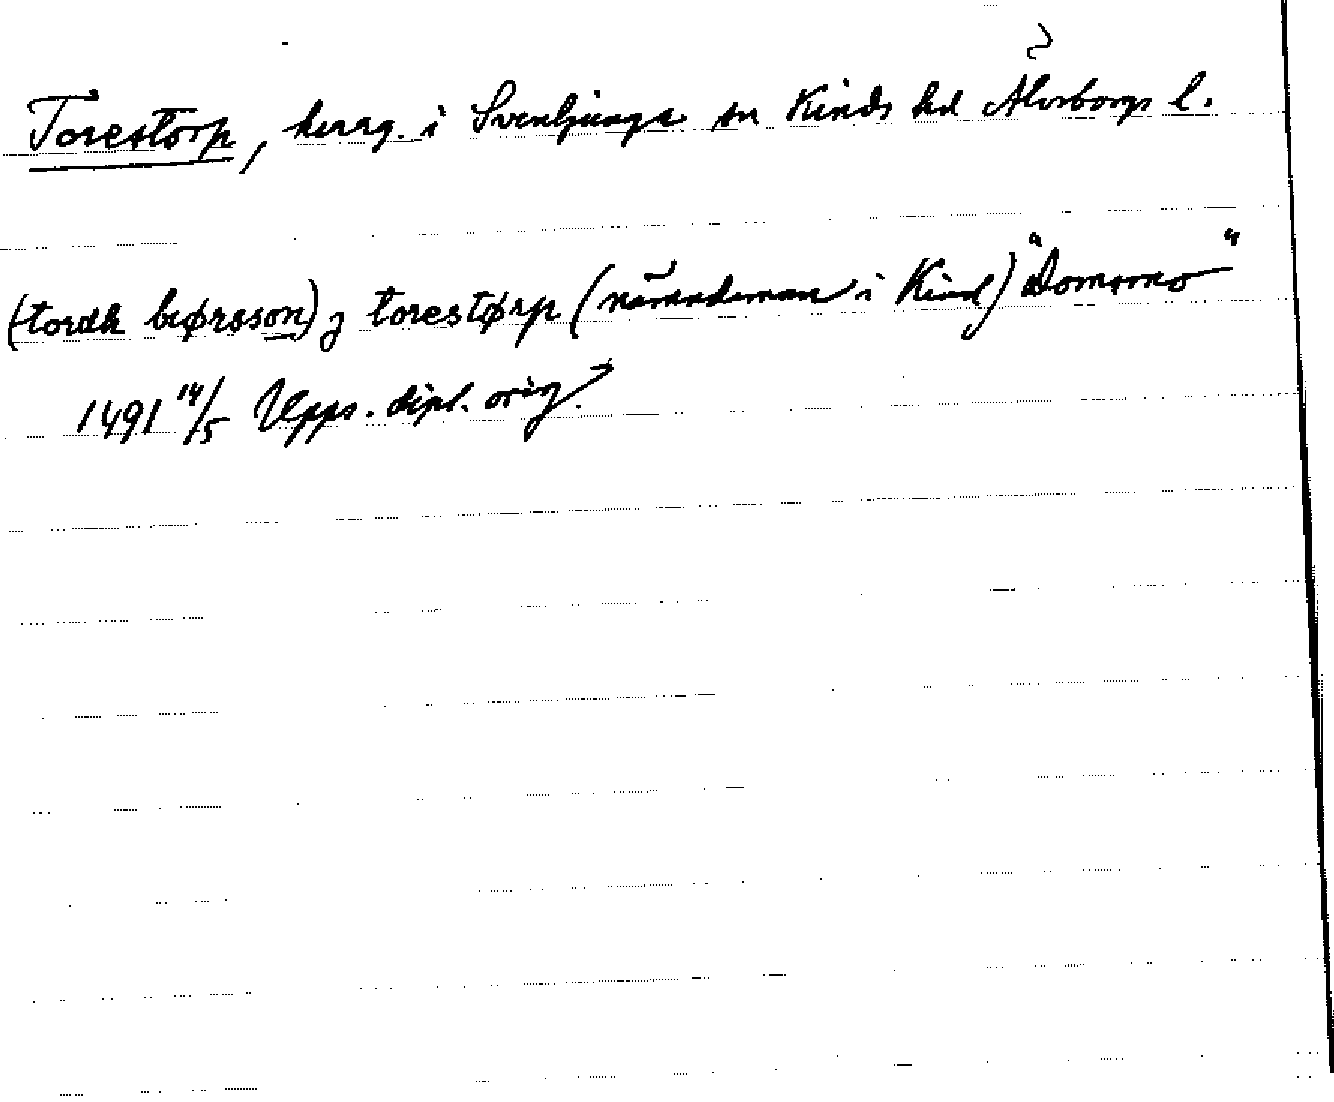 Torestorp, herrg. i Svenljunga sn Kinds hd Älvsborgs l.
(tordh biørsson) j torestørp (nämndeman i Kind)
1491 14/5 Upps. dipl. orig.